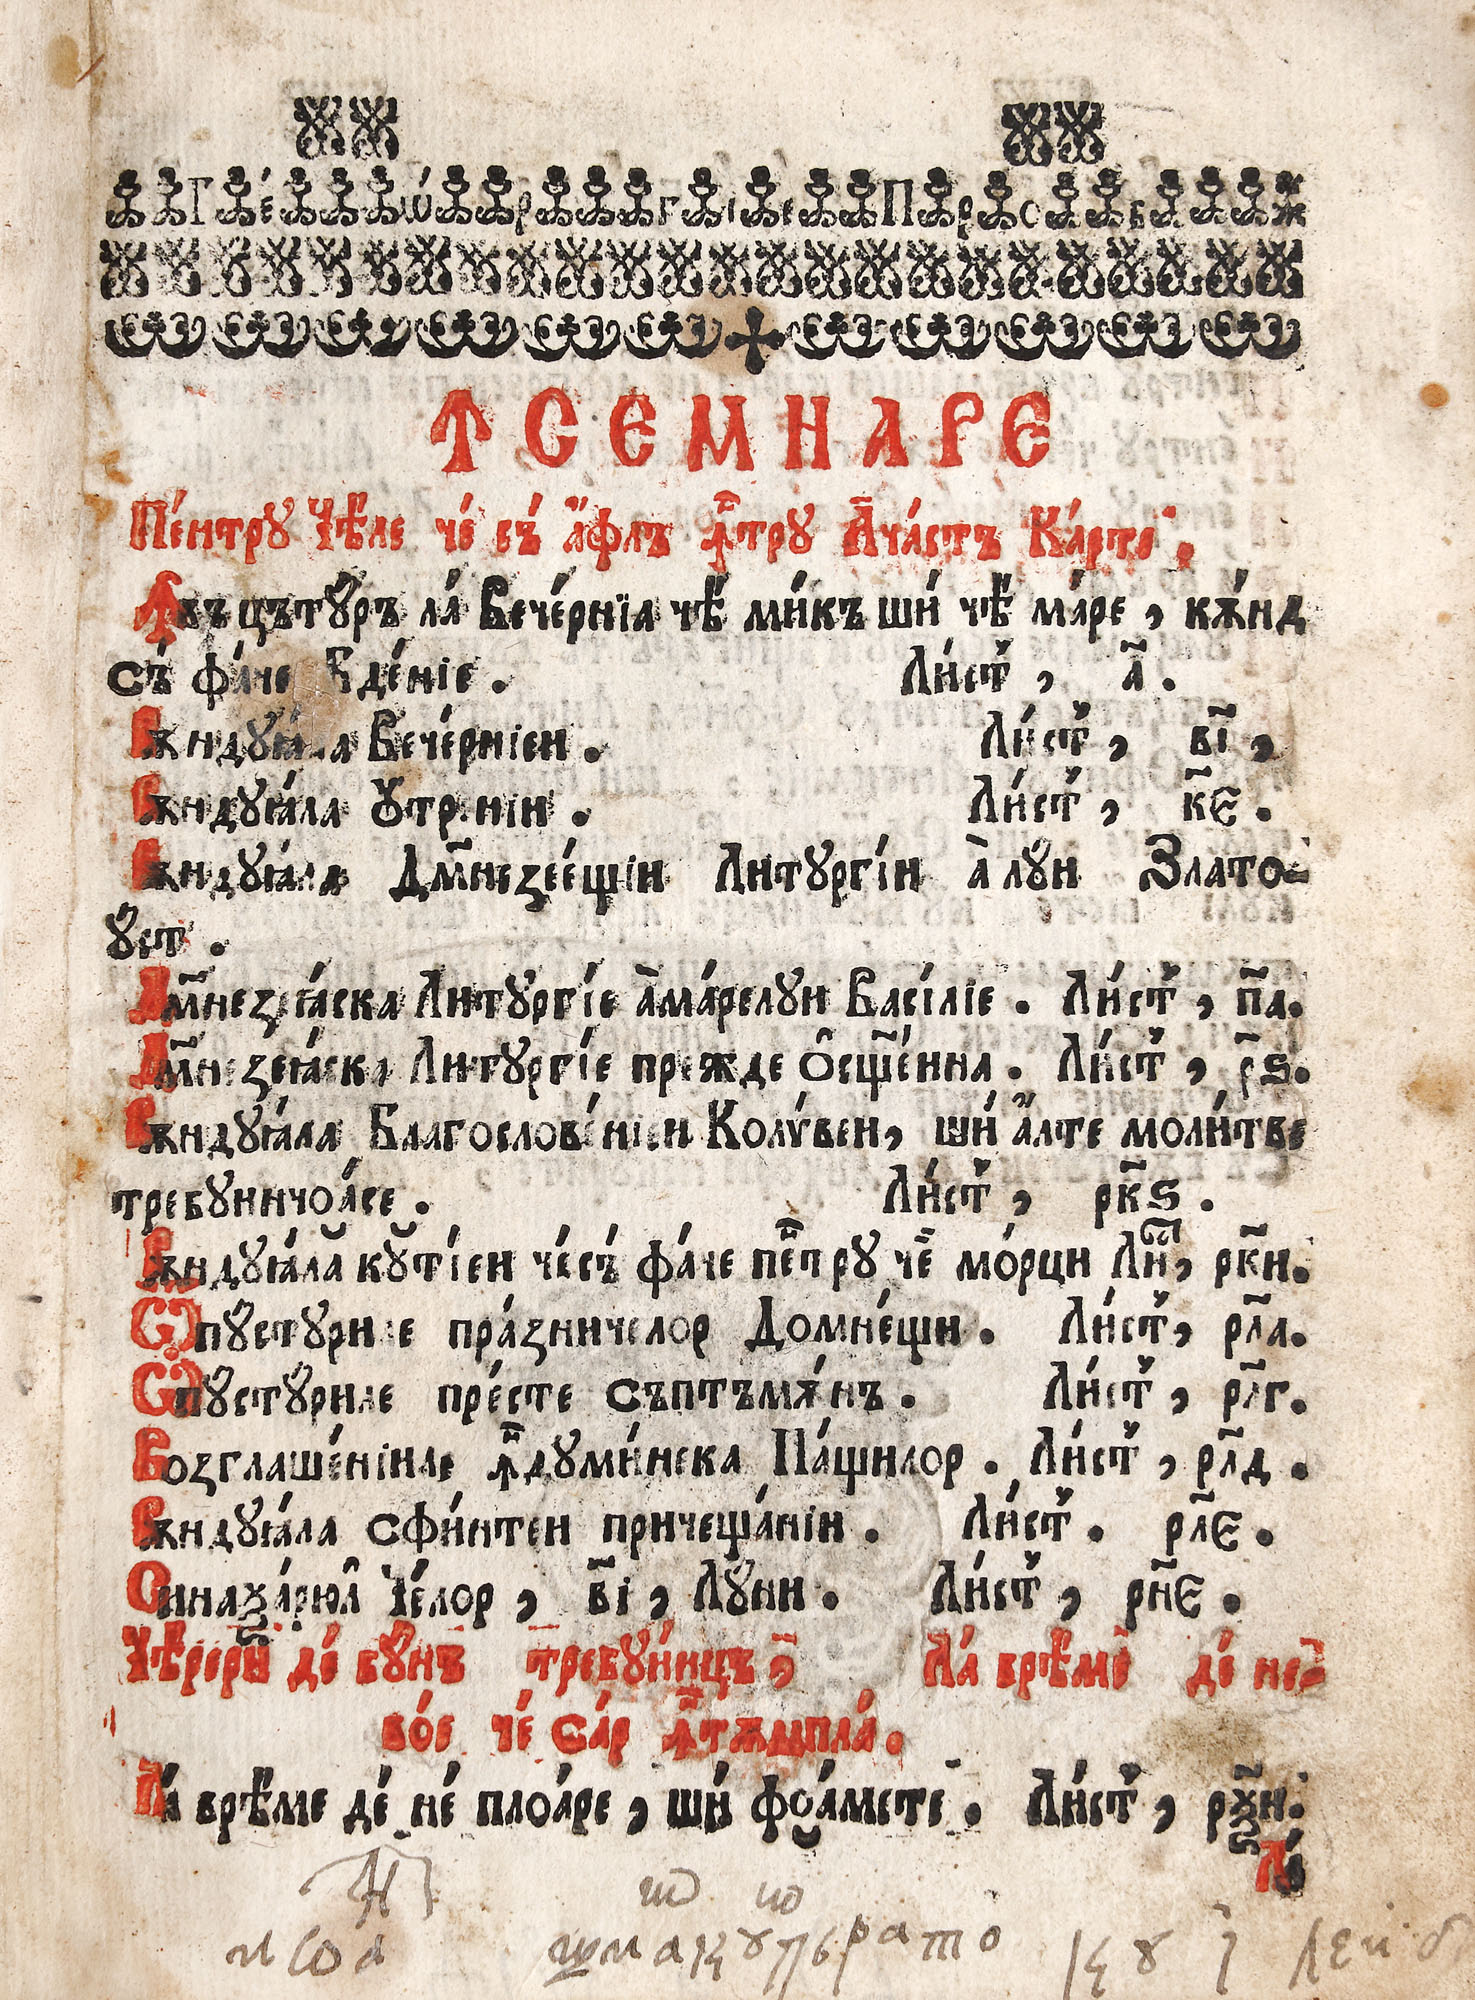 Ꙟ С Е М Н А Р Е
Пе́нтру Чѣ́ле че́ съ́ а҆́флъ ꙟ҆̃тру А҆ча́стъ Ка́рте.
Ꙟвъцътꙋ́ръ ла́ Вече́рнїа чѣ́ ми́къ ши́ чѣ́ ма́ре, кѫ́нд
съ́ фа́че Бде́нїе. Ли́ст, а҃.
Рѫндꙋꙗ́ла Вече́рнїеи. Ли́ст, в҃і,
Рѫндꙋꙗ́ла Ꙋтр.нїи. Ли́ст, к҃є.
Рѫндꙋꙗ́ла Дм҃незее́щїи Литꙋргі́и а҆ лꙋ́и Злато-
ꙋ́ст.
Дм҃незеꙗ́ска Литꙋргі́е а҆ма́релꙋи Васі́лїе. Ли́ст, п҃а.
Дм҃незеꙗ́ска Литꙋргі́е прежде Ѻ҆сщ҃е́нна. Ли́ст, р҃ѕ.
Рѫндꙋꙗ́ла Благослове́нїеи Колі́веи, ши́ а҆́лте моли́тве
требꙋничоа́се. Ли́ст, рк҃ѕ.
Рѫндꙋꙗ́ла кꙋті́еи че́съ́ фа́че пе́нтру че́ мо́рци Ли́ст, рк҃и.
Ѿпꙋстꙋриле пра́зничелор Домне́щи. Ли́ст, рл҃а.
Ѿпꙋстꙋ́риле пре́сте съптъмѫ́нъ. Ли́ст, рл҃г.
Возглаше́нїиле ꙟ҆̃думи́нека Па́щилор. Ли́ст, рл҃д.
Рѫндꙋꙗ́ла сфи́нтеи причеща́нїи. Ли́ст. рл҃є.
Сѵнаѯа́рюл Че́лор, в҃і, Лꙋ́ни. Ли́ст, рн҃є.
Чѣ́рерй де́ бꙋ́нъ требꙋи́нцъ, Ла́ врѣ́ме де́ не-
во́е че́ са́р ꙟ҆̃тѫмпла́.
Ла́ врѣ́ме де́ не́ плоа́ре, ши́ фоа́мете. Ли́ст, рѯ҃и.
Ла́